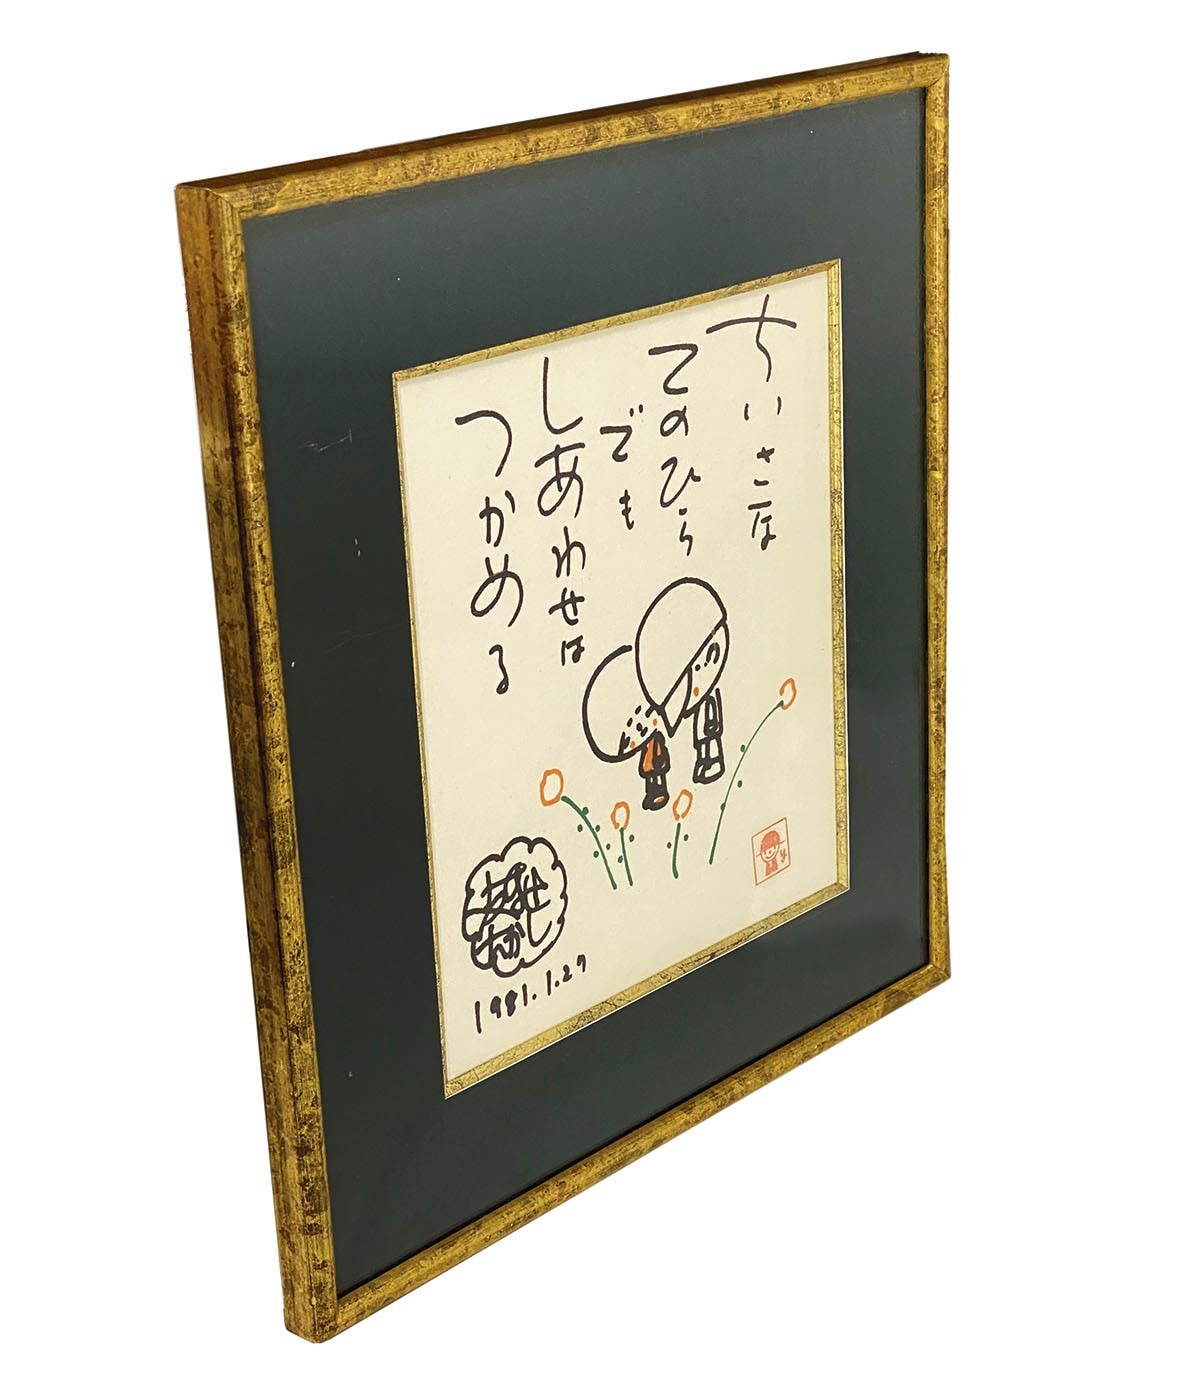 ちいさな
てのひら
でも
しあわせは
つかめる
やなせ
たかし
1981.1.27